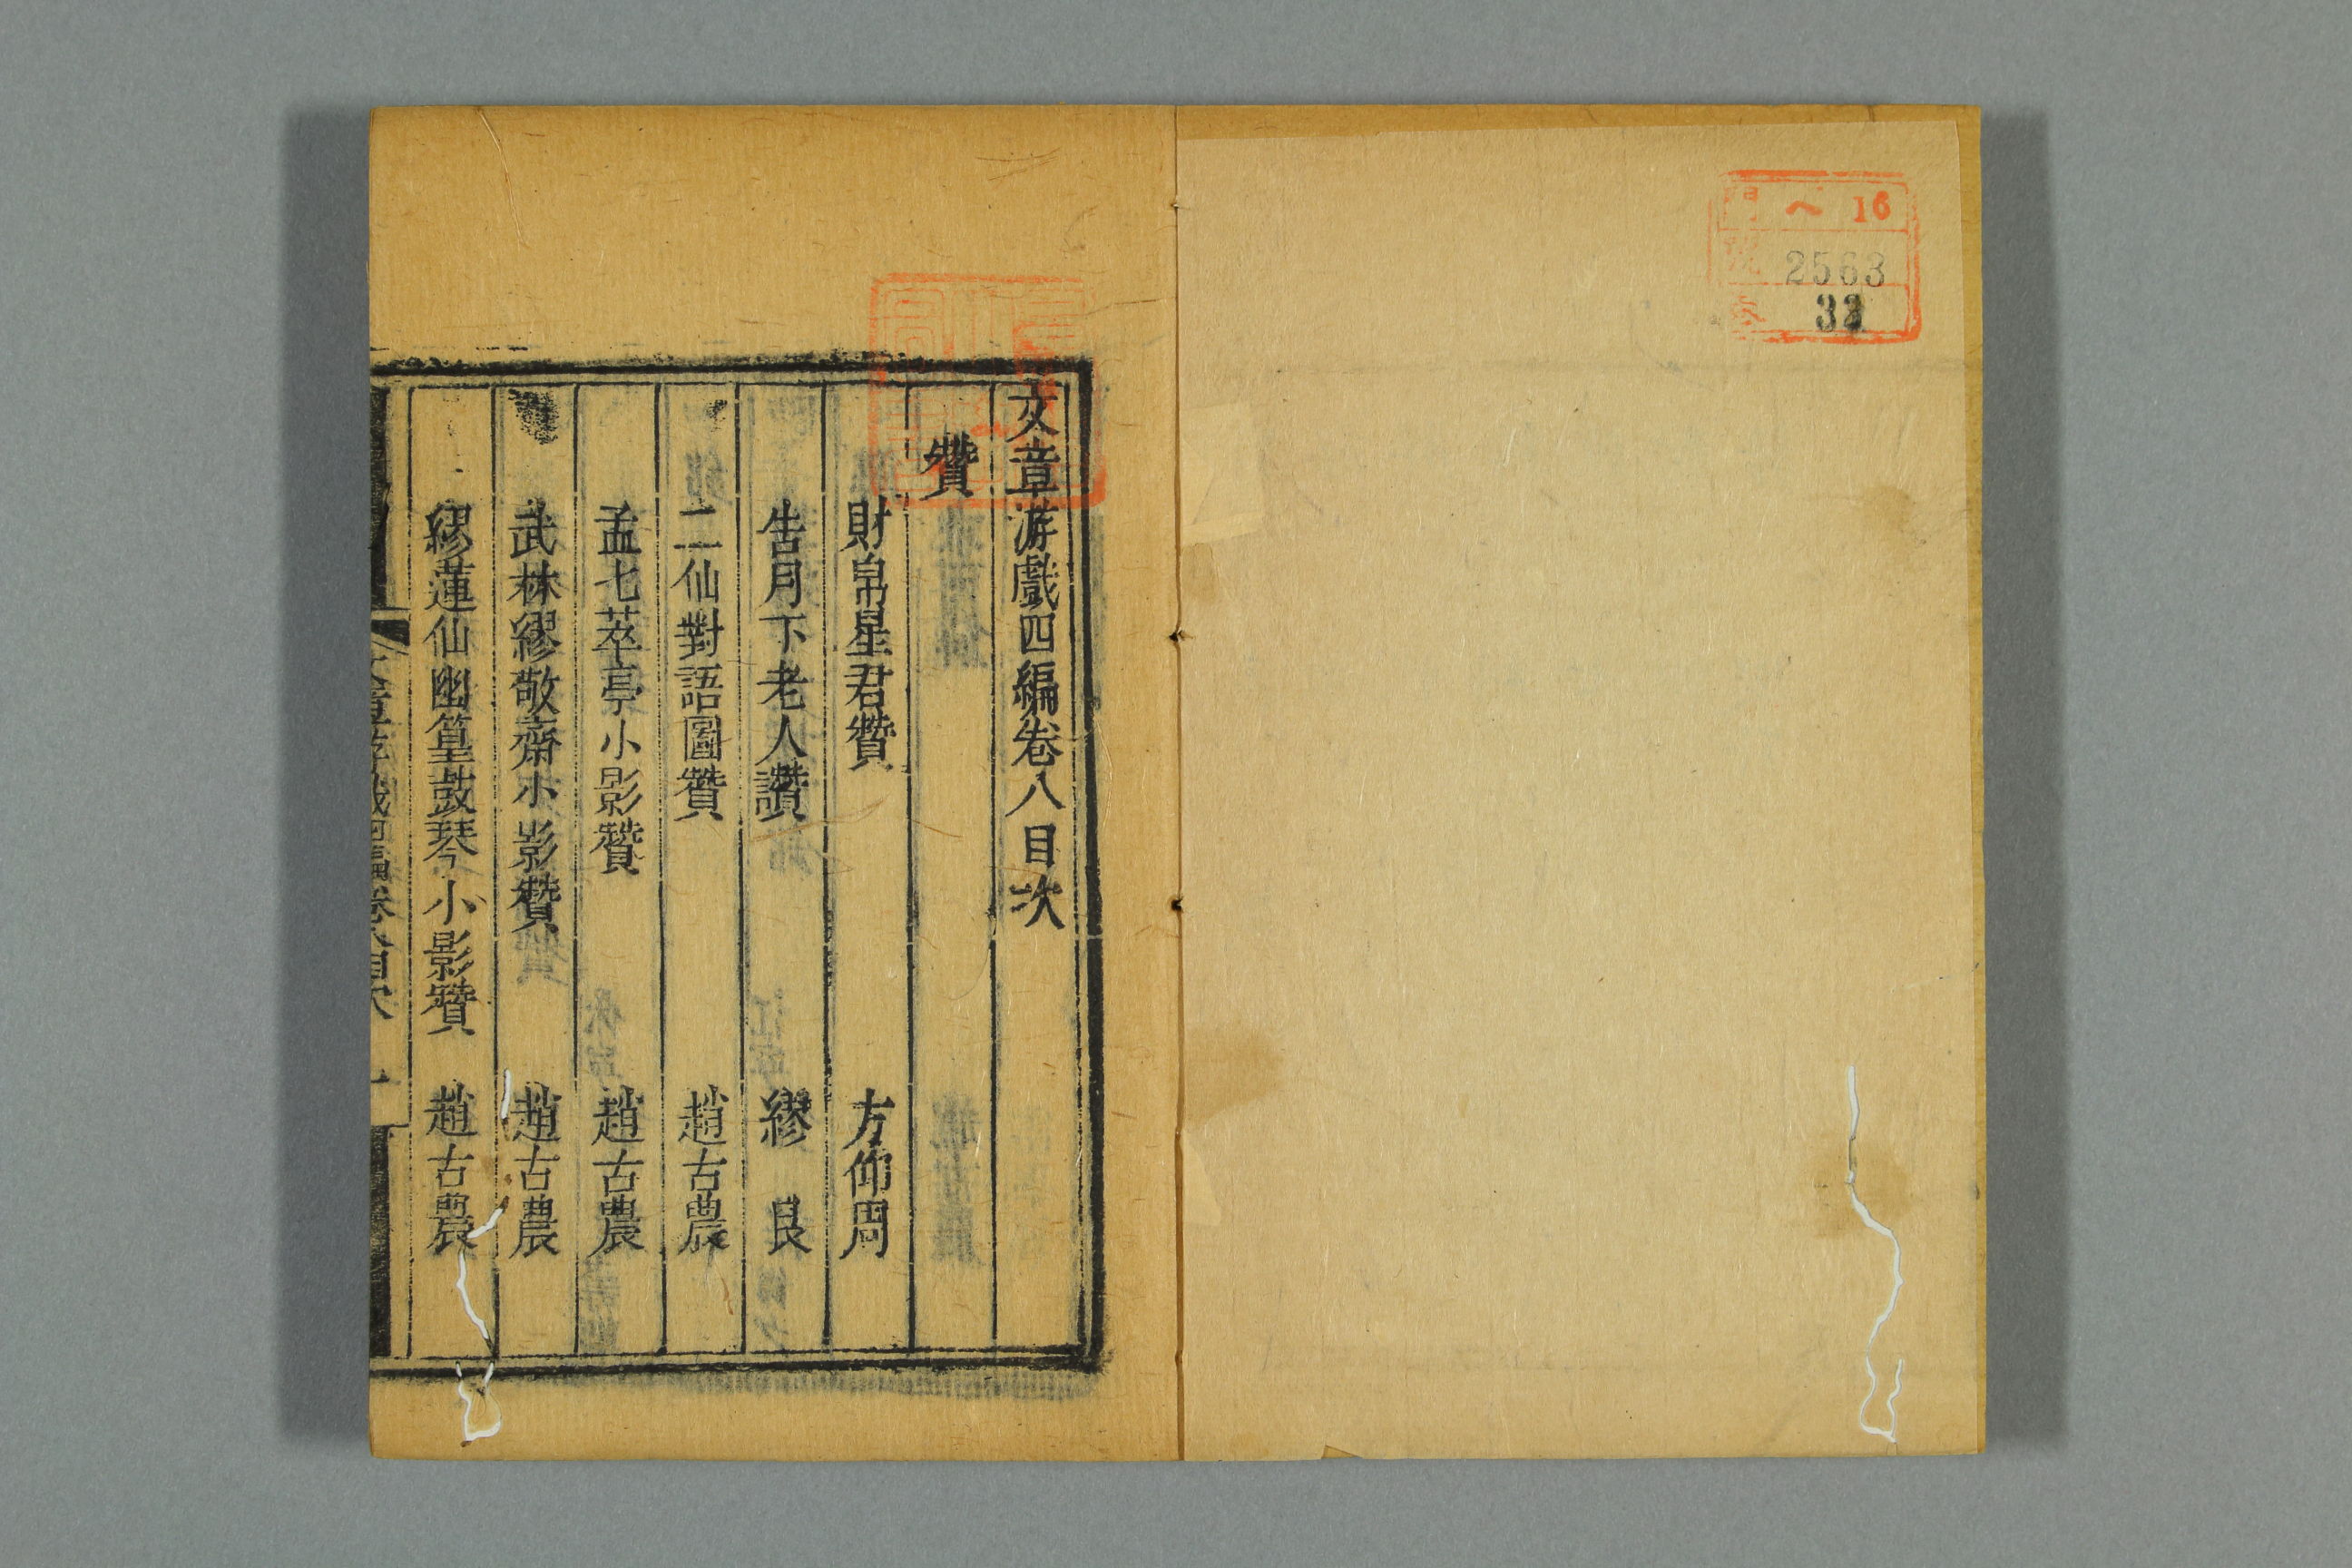 門 ヘ 16
號 2563
卷 32
文章游戲四編卷八目次
贊
財帛星君贊 方仰周
告月下老人讚 繆艮
二仙對語圖贊 趙古農
孟七萃亭小影贊 趙古農
武林繆敬齋小影贊 趙古農
繆蓮仙幽篁鼓琴小影贊 趙古農
文章游戲四編卷八目次 一